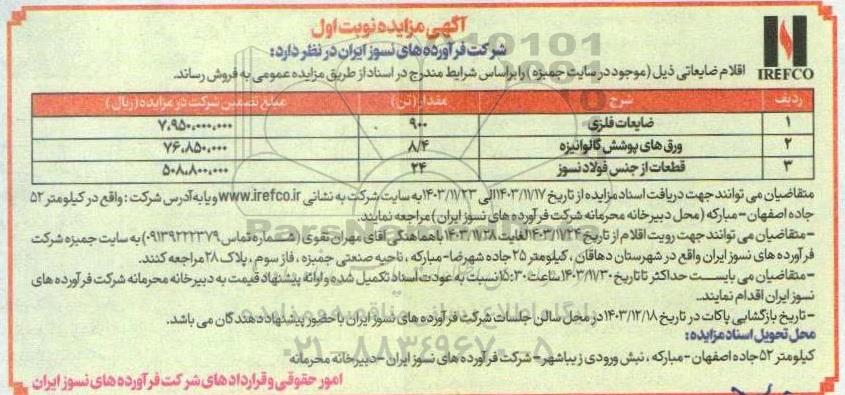 آگهی مزایده نوبت اول
شرکت فرآورده های نسوز ایران در نظر دارد:
IREFCO
اقلام ضایعاتی ذیل (موجود در سایت جمبزه) را براساس شرایط مندرج در اسناد از طریق مزایده عمومی به فروش رساند.
ردیف شرح مقدار (تن) مبلغ تضمین شرکت در مزایده (ریال)
۱ ضایعات فلزی ۹۰۰ ۷,۹۵۰,۰۰۰,۰۰۰
۲ ورق های پوشش گالوانیزه ۸/۴ ۷۶,۸۵۰,۰۰۰
۳ قطعات از جنس فولاد نسوز ۲۴ ۵۰۸,۸۰۰,۰۰۰
متقاضیان می توانند جهت دریافت اسناد مزایده از تاریخ ۱۴۰۳/۱۱/۱۷ الی ۱۴۰۳/۱۱/۲۳ به سایت شرکت به نشانی www.irefco.ir و یا به آدرس شرکت: واقع در کیلومتر ۵۲
جاده اصفهان - مبارکه (محل دبیرخانه محرمانه شرکت فرآورده های نسوز ایران) مراجعه نمایند.
- متقاضیان می توانند جهت رویت اقلام از تاریخ ۱۴۰۳/۱۱/۲۴ لغایت ۱۴۰۳/۱۱/۲۸ با هماهنگی آقای مهران تقوی (شماره تماس ۰۹۱۳۹۲۲۲۳۷۹) به سایت جمبزه شرکت
فرآورده های نسوز ایران واقع در شهرستان دهاقان، کیلومتر ۲۵ جاده شهرضا - مبارکه، ناحیه صنعتی جمبزه، فاز سوم، پلاک ۲۸ مراجعه کنند.
- متقاضیان می بایست حداکثر تا تاریخ ۱۴۰۳/۱۱/۳۰ ساعت ۱۵:۳۰ نسبت به عودت اسناد تکمیل شده و ارائه پیشنهاد قیمت به دبیرخانه محرمانه شرکت فرآورده های
نسوز ایران اقدام نمایند.
- تاریخ بازگشایی پاکات در تاریخ ۱۴۰۳/۱۲/۱۸ در محل سالن جلسات شرکت فرآورده های نسوز ایران با حضور پیشنهاد دهندگان می باشد.
محل تحویل اسناد مزایده:
کیلومتر ۵۲ جاده اصفهان - مبارکه، نبش ورودی زیباشهر - شرکت فرآورده های نسوز ایران - دبیرخانه محرمانه
امور حقوقی و قراردادهای شرکت فرآورده های نسوز ایران